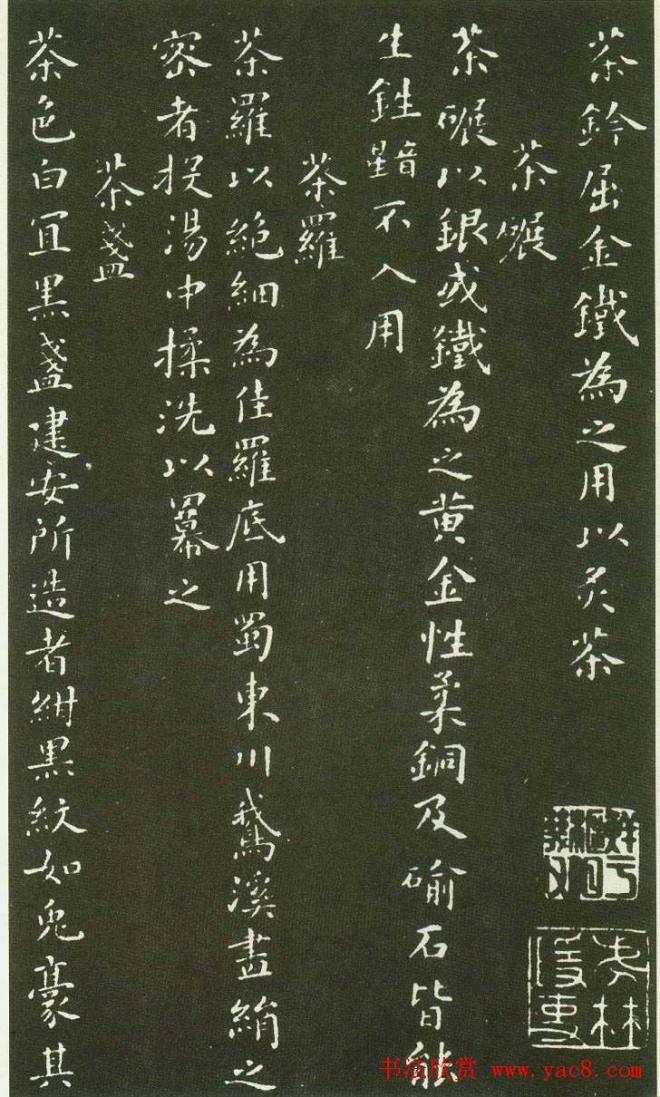 茶鈐屈金鐵為之用以炙茶
茶碾
茶碾以銀或鐵為之黄金性柔銅及碖石皆能
生鉎不入用
茶羅
茶羅以絶細為佳羅底用蜀東川鵝溪畫絹之
密者投湯中揉洗以羃之
茶盞
茶色白宜黒盞建安所造者紺黒紋如兎豪其
书法欣赏 www.yac8.com